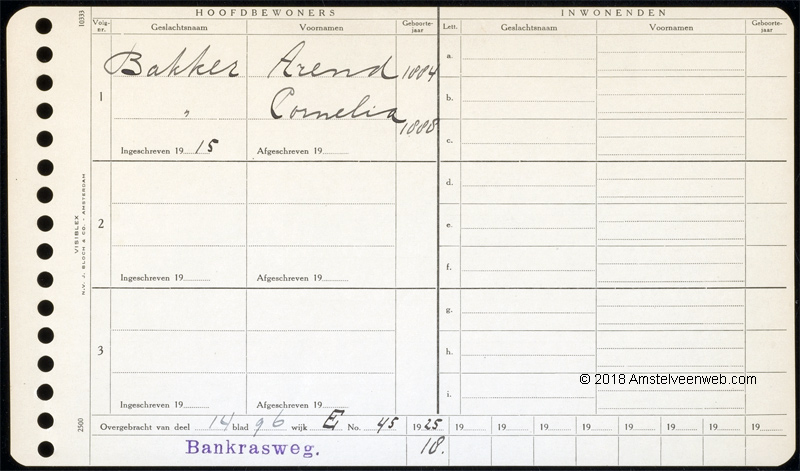 HOOFDBEWONERS INWONENDEN
Volg-nr. Geslachtsnaam Voornamen Geboorte-jaar Lett. Geslachtsnaam Voornamen Geboorte-jaar
10333
1 Bakker Arend 1884 a.
" Cornelia 1888 b.
c.
Ingeschreven 19 15 Afgeschreven 19
VISIBLEX
N.V. J. BLOCH & CO. - AMSTERDAM
2 d.
e.
f.
Ingeschreven 19 Afgeschreven 19
3 g.
h.
i.
© 2018 Amstelveenweb.com
Ingeschreven 19 Afgeschreven 19
2500
Overgebracht van deel 14 blad 96 wijk E No. 45 1925 19 19 19 19 19 19 19 19
Bankrasweg. 18.